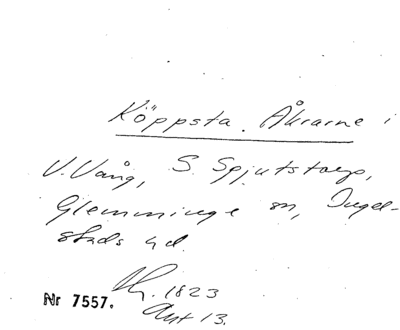 Köppsta. Åkrarne i
V. Vång, S. Spjutstorp,
Glemminge sn, Ingel-
stads hd.
1823
Nr 7557.
Akt 13.